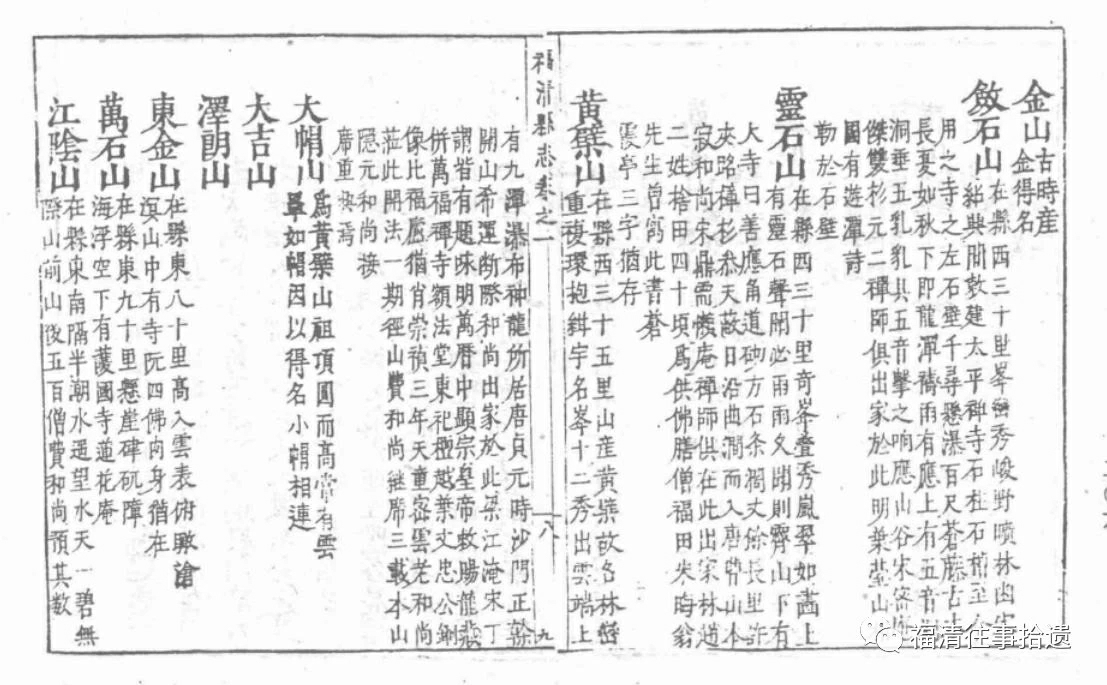 金山古時産金得名
斂石山在縣西三十里峯巒秀峻野曠林幽宋
紹興間敕建太平禪寺石柱石梢至今
用之寺之左石壁千尋懸瀑百尺蒼藤古木
長夏如秋下即龍潭禱雨有應上有五音
洞垂五乳乳具五音擊之响應山谷宋密
傑雙杉元二禪師俱出家於此明葉臺山
國有遊潭詩
勒於石壁
靈石山在縣西三十里奇峯叠秀嵐翠如畵上
有靈石聲聞必雨雨久聞則霽山下有
大寺曰善應角道砌方石条濶丈餘長里許
夾路碑杉恭天蔽日沿曲澗而入唐曹山本
寂和尚宋鼎需懶庵禪師俱在此出家林趙
二姓捨田四十頃爲供佛膳僧福田朱晦翁
先生曽寫此書蒼
霞亭三字猶存
黄檗山在縣西三十五里山産黄檗故名林巒
重複環抱緝宇名峯十二秀出雲端上
福清縣志卷之一
十八
九
有九潭瀑布神龍所居唐貞元時沙門正幹
開山希運断際和尚出家於此梁江淹宋丁
謂皆有題咏明萬曆中顯宗皇帝敕賜龍藏
併萬福禪寺額法堂東祀檀越葉文忠公鄉
像比福廬猶肖崇禎三年天童密雲老和尚
蒞此開法一期徑山費和尚継席三載本山
隠元和尚接
席重興焉
大帽山爲黄檗山祖頂圓而高常有雲
單如帽因以得名小帽相連
大吉山
澤朗山
東金山在縣東八十里高入雲表俯瞰滄
溟山中有寺阮四佛肉身猶在
萬石山在縣東九十里懸崖砗矹障
海浮空下有護國寺蓮花庵
江陰山在縣東南隔半潮水遥望水天一碧無
際山前山後五百僧費和尚預其数
福清往事拾遗